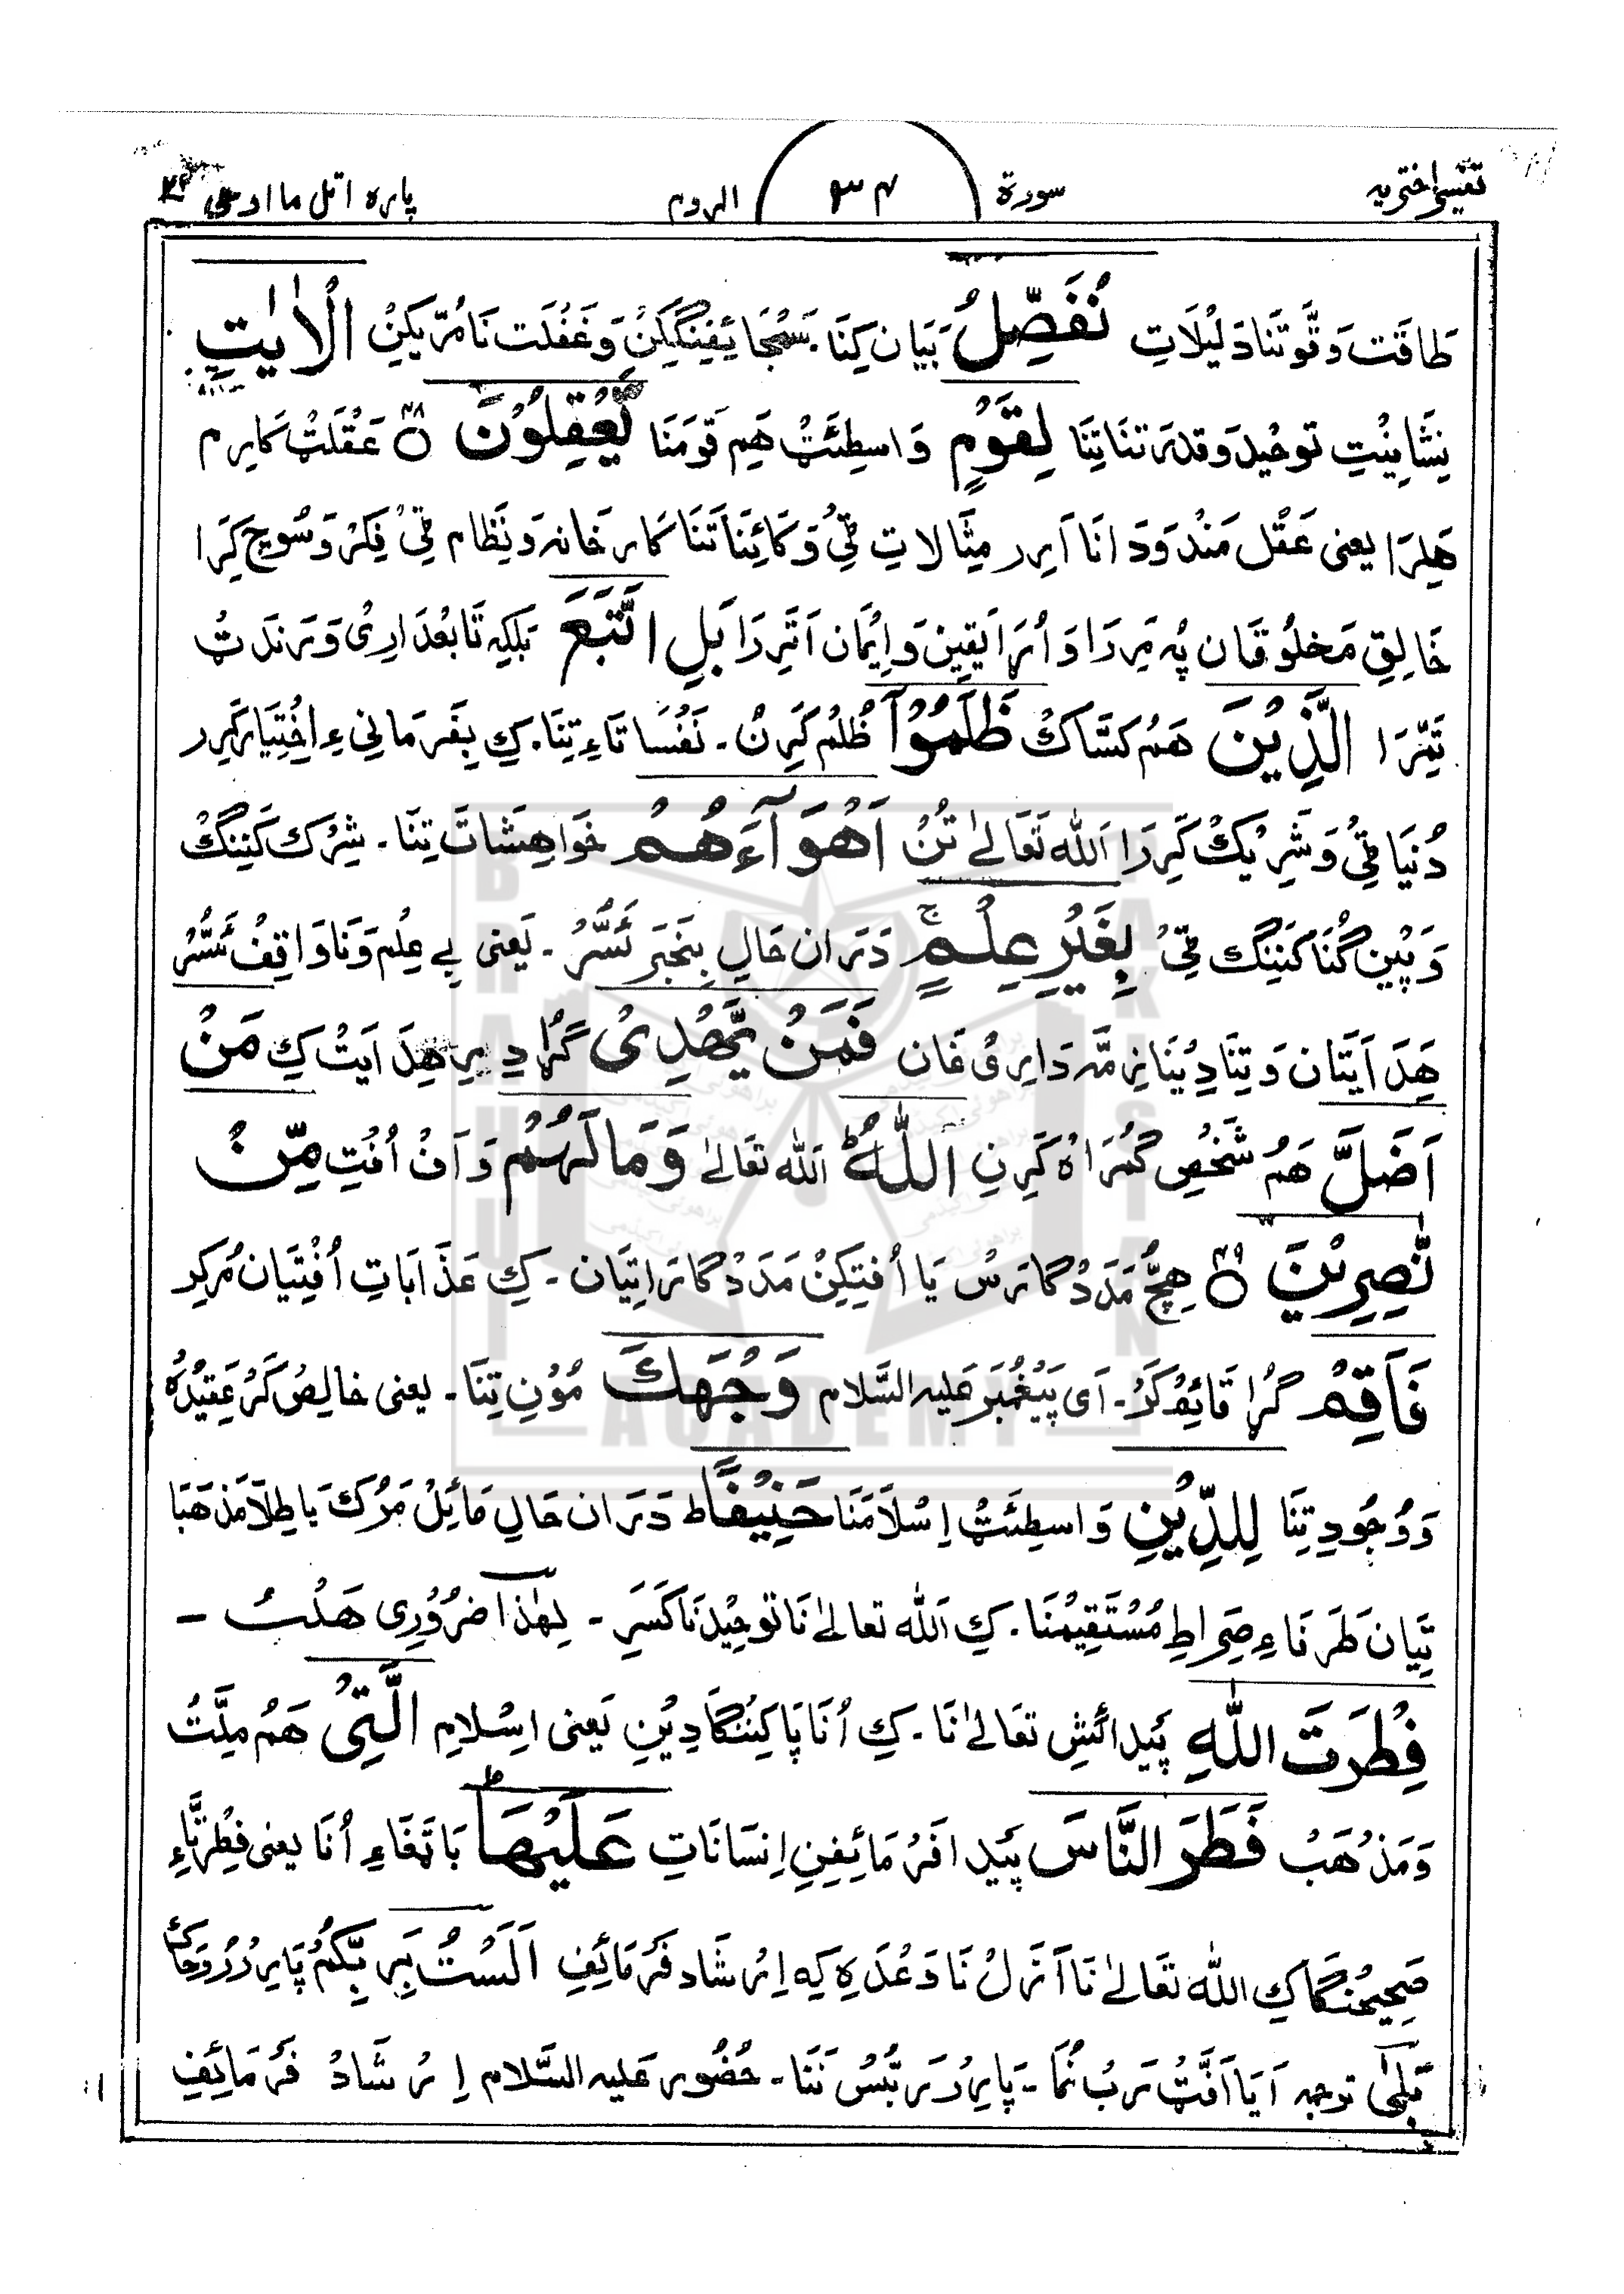 تفسیر اختریہ سورۃ ۳۴ الروم پارہ اتل ما اوحی
طَاقَت وَ قُوّتَنَا دَلِیْلَاتِ نُفَصِّلُ بَیَان کِنَا۔ سَمْجَائِفِنْگَکِنْ وَ غَفْلَت نَا مُرّیکِنْ الْاٰیٰتِ
نِشَانِیْتِ توحْید وَ قدرتنَا تِنَا لِقَوْمٍ وَاسطِئَتْ هَمِ قَومَنَا یَّعْقِلُوْنَ ۲۸ عَقْلَتْ کَارِم
هَلِرَا یعنی عَقْل مَنْد وَ دَانَا اَرِر مِثَالَاتِ ٹِیْ وَ کَائِنَاتَنَا کَار خَانہ وَ نِظَام ٹِیْ فِکَرْ وَ سُوچ کِرَا
خَالِقِ مَخلُوقَان پُہ مَرِرَا وَ اُرَا یَقِین وَ اِیْمَان اَتِرَا بَلِ اتَّبَعَ بَلکِہ تَابعْدَارِیْ وَ رَندَٹْ
تَرِّرَا الَّذِیْنَ هَمْ کَسَّاکْ ظَلَمُوْۤا ظُلُم کَرِنْ۔ نَفْسَاتَاءِ تِنَا۔ کِ بِفَرمَانِی ءِ اِخْتِیَار کَرِر
دُنیَا ٹِیْ وَ شَرِیْکْ کَرِرَا اَللّٰہ تَعَالیٰ تُنْ اَهْوَآءَهُمْ خَوَاهِشَاتَ تِنَا۔ شِرْک کَنِنْگْ
وَ پِیْن گُنَا کَنِنْگ ٹِیْ بِغَیْرِ عِلْمٍ ۚ دَرَان حَالِ بِخَبَر ئَسُّرْ۔ یَعنی بِے عِلْم وَ نَاوَاقِفْ ئَسُّرْ
هَدَ اَیَتَان وَ تِنَا دِیْنَا ذِمَّہ دَارِی غَان فَمَنْ یَّهْدِیْ گُڑَا دِیرِ هِدَایَتْ کِ مَنْ
اَضَلَّ هَمْ شَخْصِ گُمْرَاهْ کَرِنِ اَللّٰهُ ؕ اَللّٰہ تَعَالیٰ وَمَا لَهُمْ وَ اَفْ اُفْتِ مِّنْ
نّٰصِرِیْنَ ۲۹ هِچّْ مَدَدْ گَارَسْ یَا اُفتِکِنْ مَدَدْ گَارَاتِیَان۔ کِ عَذَابَاتِ اُفْتِیَان مُرکِر
فَاَقِمْ گُڑَا قَائِمْ کَرْ۔ اَی پَیْغُمْبَر عَلیہ السَّلام وَجْهَكَ مُوْنِ تِنَا۔ یعنی خَالِصْ کَرْ عَقِیْدَہ
وَ وُجُودِ تِنَا لِلدِّیْنِ وَاسطِئَتْ اِسْلَامَنَا حَنِیْفًا ؕ دَرَان حَالِ مَائِلْ مَرُکَ بَاطِلَا مَذهَبَا
تِیَان طَرفَاءِ صِرَاطِ مُسْتَقِیْمنَا۔ کِ اَللّٰہ تعالیٰ نَا تَوحِیْدنَا کَسَرِ۔ لِهٰذَا ضرُوْرِی هَنْتْ۔
فِطْرَتَ اللّٰهِ پَیدائَشِ تعَالیٰ نَا۔ کِ اُنَا پَاکِنُنْگَا دِیْنِ یَعنی اسْلامِ الَّتِیْ هَمْ مِلَّتْ
وَ مَذْهَبْ فَطَرَ النَّاسَ پَیدا فَرْمَائِفِنِ اِنسَانَاتِ عَلَیْهَا ؕ بَاتَّفَاءِ اُنَا یعنی فِطْرَتَاءِ
صَحِیحُنْگَا کِ اللّٰہ تَعَالیٰ نَا اَزَلْ نَا وَعْدَہ کِہ اِرْشَاد فَرْمَائِفِ اَلَسْتُ بِرَبِّکُمْ پَارِرْ
بَلٰی ترجمہ اَیَا اَفَّتْ رَبْ نُمَا۔ پَارِرْ رَبَّسْ نَنَا۔ حُضُور عَلیہ السَّلام اِرْشَادْ فَرْمَائِفِ